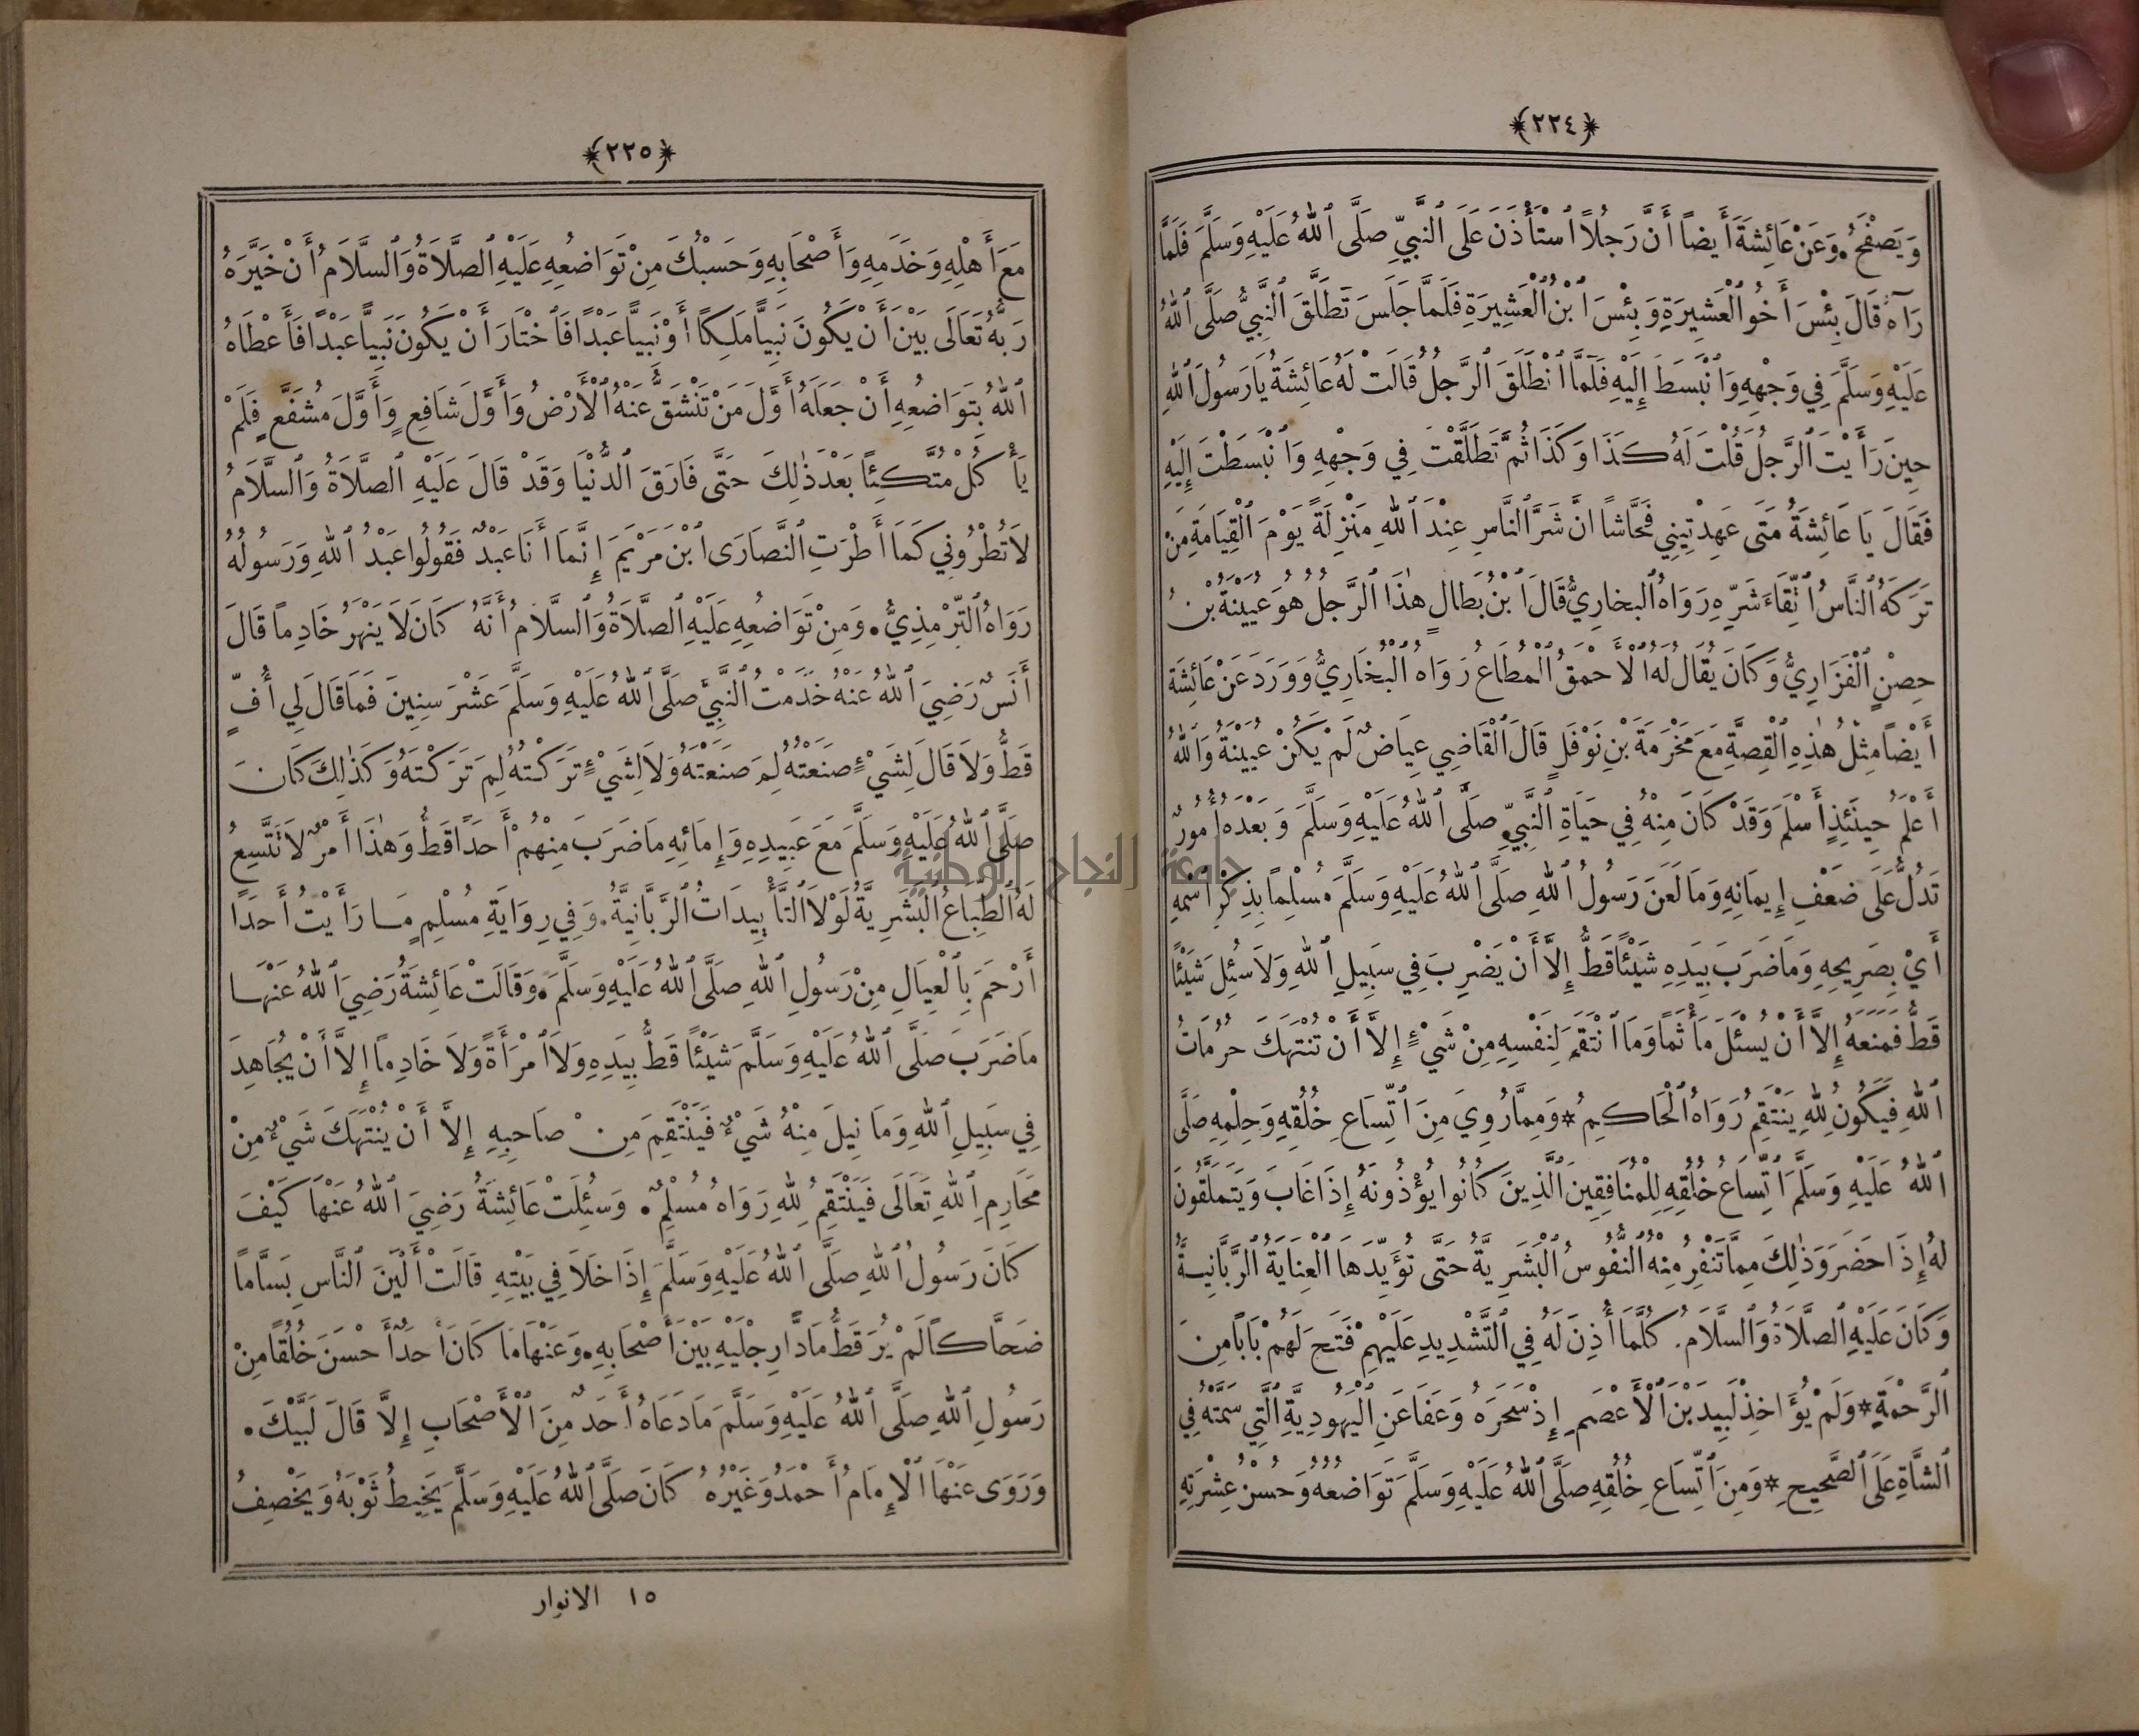 ﴿٢٢٤﴾
وَيَصْفَحُ. وَعَنْ عَائِشَةَ أَيضاً أَنَّ رَجُلاً ٱسْتَأْذَنَ عَلَى ٱلنَّبِيِّ صَلَّى ٱللهُ عَلَيْهِ وَسَلَّمَ فَلَمَّا
رَآهُ قَالَ بِئْسَ أَخُو ٱلْعَشِيرَةِ وَبِئْسَ ٱبْنُ ٱلْعَشِيرَةِ فَلَمَّا جَلَسَ تَطَلَّقَ ٱلنَّبِيُّ صَلَّى ٱللهُ
عَلَيْهِ وَسَلَّمَ فِي وَجْهِهِ وَٱنْبَسَطَ إِلَيْهِ فَلَمَّا ٱنْطَلَقَ ٱلرَّجُلُ قَالَتْ لَهُ عَائِشَةُ يَا رَسُولَ ٱللهِ
حِينَ رَأَيْتَ ٱلرَّجُلَ قُلْتَ لَهُ كَذَا وَكَذَا ثُمَّ تَطَلَّقْتَ فِي وَجْهِهِ وَٱنْبَسَطْتَ إِلَيْهِ
فَقَالَ يَا عَائِشَةُ مَتَى عَهِدْتِينِي فَحَّاشاً انَّ شَرَّ ٱلنَّاسِ عِنْدَ ٱللهِ مَنْزِلَةً يَوْمَ ٱلْقِيَامَةِ مَنْ
تَرَكَهُ ٱلنَّاسُ ٱتِّقَاءَ شَرِّهِ رَوَاهُ ٱلبخارِيُّ قَالَ ٱبْنُ بَطَالٍ هٰذَا ٱلرَّجُلُ هُوَ عُيَيْنَةُ بْنُ
حِصْنٍ ٱلْفَزَارِيُّ وَكَانَ يُقَالُ لَهُ ٱلْأَحْمَقُ ٱلْمُطَاعُ رَوَاهُ ٱلْبُخَارِيُّ وَوَرَدَ عَنْ عَائِشَةَ
أَيْضاً مِثْلُ هٰذِهِ ٱلْقِصَّةِ مَعَ مَخْرَمَةَ بْنِ نَوْفَلٍ قَالَ ٱلْقَاضِي عِيَاضٌ لَمْ يَكُنْ عُيَيْنَةُ وَٱللهُ
أَعْلَمُ حِينَئِذٍ أَسْلَمَ وَقَدْ كَانَ مِنْهُ فِي حَيَاةِ ٱلنَّبِيِّ صَلَّى ٱللهُ عَلَيْهِ وَسَلَّمَ وَبَعْدَهُ أُمُورٌ
تَدُلُّ عَلَى ضَعْفِ إِيمَانِهِ وَمَا لَعَنَ رَسُولُ ٱللهِ صَلَّى ٱللهُ عَلَيْهِ وَسَلَّمَ مُسْلِماً بِذِكْرِ ٱسْمِهِ
أَيْ بِصَرِيحِهِ وَمَا ضَرَبَ بِيَدِهِ شَيْئًا قَطُّ إِلَّا أَنْ يَضْرِبَ فِي سَبِيلِ ٱللهِ وَلَا سُئِلَ شَيْئًا
قَطُّ فَمَنَعَهُ إِلَّا أَنْ يُسْئَلَ مَأْثَمًا وَمَا ٱنْتَقَمَ لِنَفْسِهِ مِنْ شَيْءٍ إِلَّا أَنْ تُنْتَهَكَ حُرُمَاتُ
ٱللهِ فَيَكُونُ لِلّٰهِ يَنْتَقِمُ رَوَاهُ ٱلْحَاكِمُ * وَمِمَّا رُوِيَ مِنَ ٱتِّسَاعِ خُلُقِهِ وَحِلْمِهِ صَلَّى
ٱللهُ عَلَيْهِ وَسَلَّمَ ٱتِّسَاعُ خُلُقِهِ لِلْمُنَافِقِينَ ٱلَّذِينَ كَانُوا يُؤْذُونَهُ إِذَا غَابَ وَيَتَمَلَّقُونَ
لهُ إِذَا حَضَرَ وَذٰلِكَ مِمَّا تَنْفِرُ مِنْهُ ٱلنُّفُوسُ ٱلْبَشَرِيَّةُ حَتَّى تُؤَيِّدَهَا ٱلْعِنَايَةُ ٱلرَّبَّانِيةُ
وَكَانَ عَلَيْهِ ٱلصَّلَاةُ وَٱلسَّلَامُ. كُلَّمَا أُذِنَ لَهُ فِي ٱلتَّشْدِيدِ عَلَيْهِمْ فَتَحَ لَهُمْ بَابًا مِنَ
ٱلرَّحْمَةِ * وَلَمْ يُؤَاخِذْ لَبِيدَ بْنَ ٱلْأَعْصَمِ إِذْ سَحَرَهُ وَعَفَا عَنِ ٱلْيَهُودِيَّةِ ٱلَّتِي سَمَّتْهُ فِي
ٱلشَّاةِ عَلَى ٱلصَّحِيحِ * وَمِنَ ٱتِّسَاعِ خُلُقِهِ صَلَّى ٱللهُ عَلَيْهِ وَسَلَّمَ تَوَاضُعُهُ وَحُسْنُ عِشْرَتِهِ
﴿٢٢٥﴾
مَعَ أَهْلِهِ وَخَدَمِهِ وَأَصْحَابِهِ وَحَسْبُكَ مِنْ تَوَاضُعِهِ عَلَيْهِ ٱلصَّلَاةُ وَٱلسَّلَامُ أَنْ خَيَّرَهُ
رَبُّهُ تَعَالَى بَيْنَ أَنْ يَكُونَ نَبِيًّا مَلَكِاً أَوْ نَبِيًّا عَبْدًا فَٱخْتَارَ أَنْ يَكُونَ نَبِيًّا عَبْدًا فَأَعْطَاهُ
ٱللهُ بِتَوَاضُعِهِ أَنْ جَعَلَهُ أَوَّلَ مَنْ تَنْشَقُّ عَنْهُ ٱلْأَرْضُ وَأَوَّلَ شَافِعٍ وَأَوَّلَ مُشَفَّعٍ فَلَمْ
يَأْكُلْ مُتَّكِئًا بَعْدَ ذٰلِكَ حَتَّى فَارَقَ ٱلدُّنْيَا وَقَدْ قَالَ عَلَيْهِ ٱلصَّلَاةُ وَٱلسَّلَامُ
لَا تُطْرُونِي كَمَا أَطْرَتِ ٱلنَّصَارَى ٱبْنَ مَرْيَمَ إِنَّمَا أَنَا عَبْدٌ فَقُولُوا عَبْدُ ٱللهِ وَرَسُولُهُ
رَوَاهُ ٱلتِّرْمِذِيُّ. وَمِنْ تَوَاضُعِهِ عَلَيْهِ ٱلصَّلَاةُ وَٱلسَّلَامُ أَنَّهُ كَانَ لَا يَنْهَرُ خَادِمًا قَالَ
أَنَسٌ رَضِيَ ٱللهُ عَنْهُ خَدَمْتُ ٱلنَّبِيَّ صَلَّى ٱللهُ عَلَيْهِ وَسَلَّمَ عَشْرَ سِنِينَ فَمَا قَالَ لِي أُفٍّ
قَطُّ وَلَا قَالَ لِشَيْءٍ صَنَعْتُهُ لِمَ صَنَعْتَهُ وَلَا لِشَيْءٍ تَرَكْتُهُ لِمَ تَرَكْتَهُ وَكَذٰلِكَ كَانَ
صَلَّى ٱللهُ عَلَيْهِ وَسَلَّمَ مَعَ عَبِيدِهِ وَإِمَائِهِ مَا ضَرَبَ مِنْهُمْ أَحَدًا قَطُّ وَهٰذَا أَمْرٌ لَا تَتَّسِعُ
لَهُ ٱلطِّبَاعُ ٱلْبَشَرِيَّةُ لَوْلَا ٱلتَّأْيِيدَاتُ ٱلرَّبَّانِيَّةُ. وَفِي رِوَايَةِ مُسْلِمٍ مَا رَأَيْتُ أَحَدًا
أَرْحَمَ بِٱلْعِيَالِ مِنْ رَسُولِ ٱللهِ صَلَّى ٱللهُ عَلَيْهِ وَسَلَّمَ. وَقَالَتْ عَائِشَةُ رَضِيَ ٱللهُ عَنْهَا
مَا ضَرَبَ صَلَّى ٱللهُ عَلَيْهِ وَسَلَّمَ شَيْئًا قَطُّ بِيَدِهِ وَلَا ٱمْرَأَةً وَلَا خَادِمًا إِلَّا أَنْ يُجَاهِدَ
فِي سَبِيلِ ٱللهِ وَمَا نِيلَ مِنْهُ شَيْءٌ فَيَنْتَقِمَ مِنْ صَاحِبِهِ إِلَّا أَنْ يُنْتَهَكَ شَيْءٌ مِنْ
مَحَارِمِ ٱللهِ تَعَالَى فَيَنْتَقِمُ لِلّٰهِ رَوَاهُ مُسْلِمٌ. وَسُئِلَتْ عَائِشَةُ رَضِيَ ٱللهُ عَنْهَا كَيْفَ
كَانَ رَسُولُ ٱللهِ صَلَّى ٱللهُ عَلَيْهِ وَسَلَّمَ إِذَا خَلَا فِي بَيْتِهِ قَالَتْ أَلْيَنَ ٱلنَّاسِ بَسَّامًا
ضَحَّاكًا لَمْ يُرَ قَطُّ مَادًّا رِجْلَيْهِ بَيْنَ أَصْحَابِهِ. وَعَنْهَا مَا كَانَ أَحَدٌ أَحْسَنَ خُلُقًا مِنْ
رَسُولِ ٱللهِ صَلَّى ٱللهُ عَلَيْهِ وَسَلَّمَ مَا دَعَاهُ أَحَدٌ مِنَ ٱلْأَصْحَابِ إِلَّا قَالَ لَبَّيْكَ.
وَرَوَى عَنْهَا ٱلْإِمَامُ أَحْمَدُ وَغَيْرُهُ كَانَ صَلَّى ٱللهُ عَلَيْهِ وَسَلَّمَ يَخِيطُ ثَوْبَهُ وَيَخْصِفُ
١٥ الانوار
جامعة النجاح الوطنية